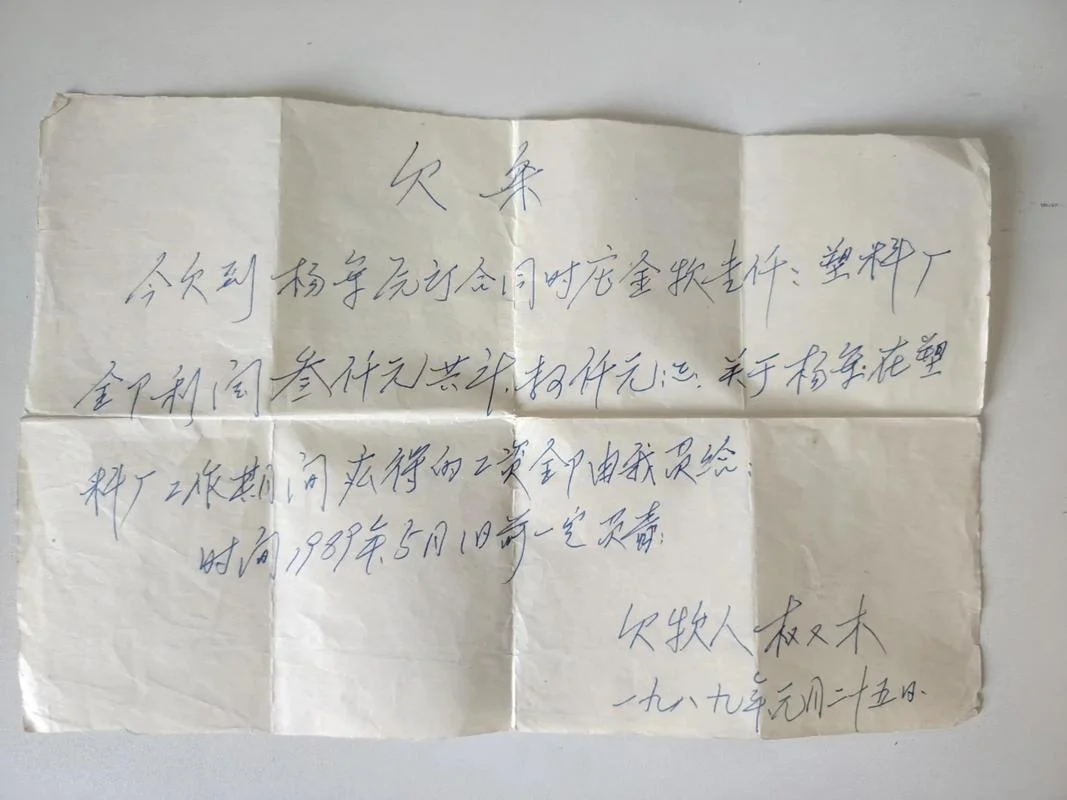 欠条
今欠到杨年元订合同时店金款壱仟;塑料厂
全部利润叁仟元共计 仟元正.关于杨 在塑
料厂工作期间应得的工资全部由我负给;
时间1989年5月1日前一定负责;
欠款人 权又木
一九八九年元月二十五日.